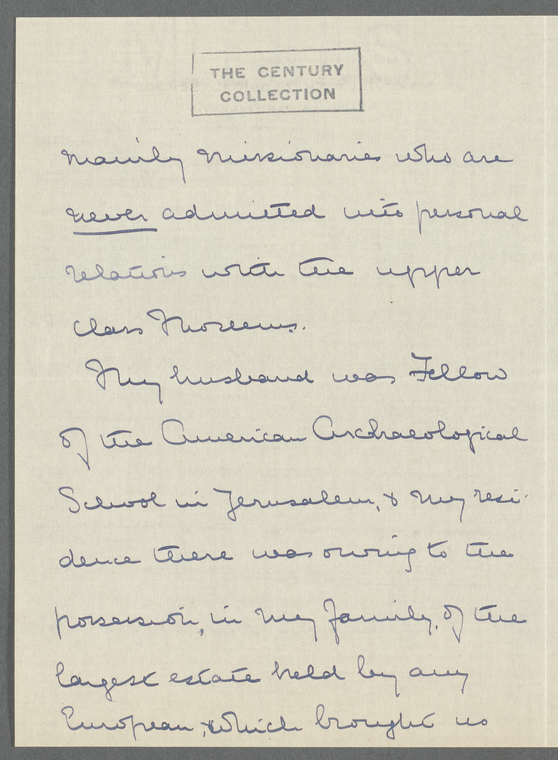 THE CENTURY
COLLECTION
mainly missionaries who are
never admitted into personal
relations with the upper
class Moslems.
My husband was Fellow
of the American Archaeological
School in Jerusalem, & my resi-
dence there was owing to the
possession, in my family, of the
largest estate held by any
European, & which brought us